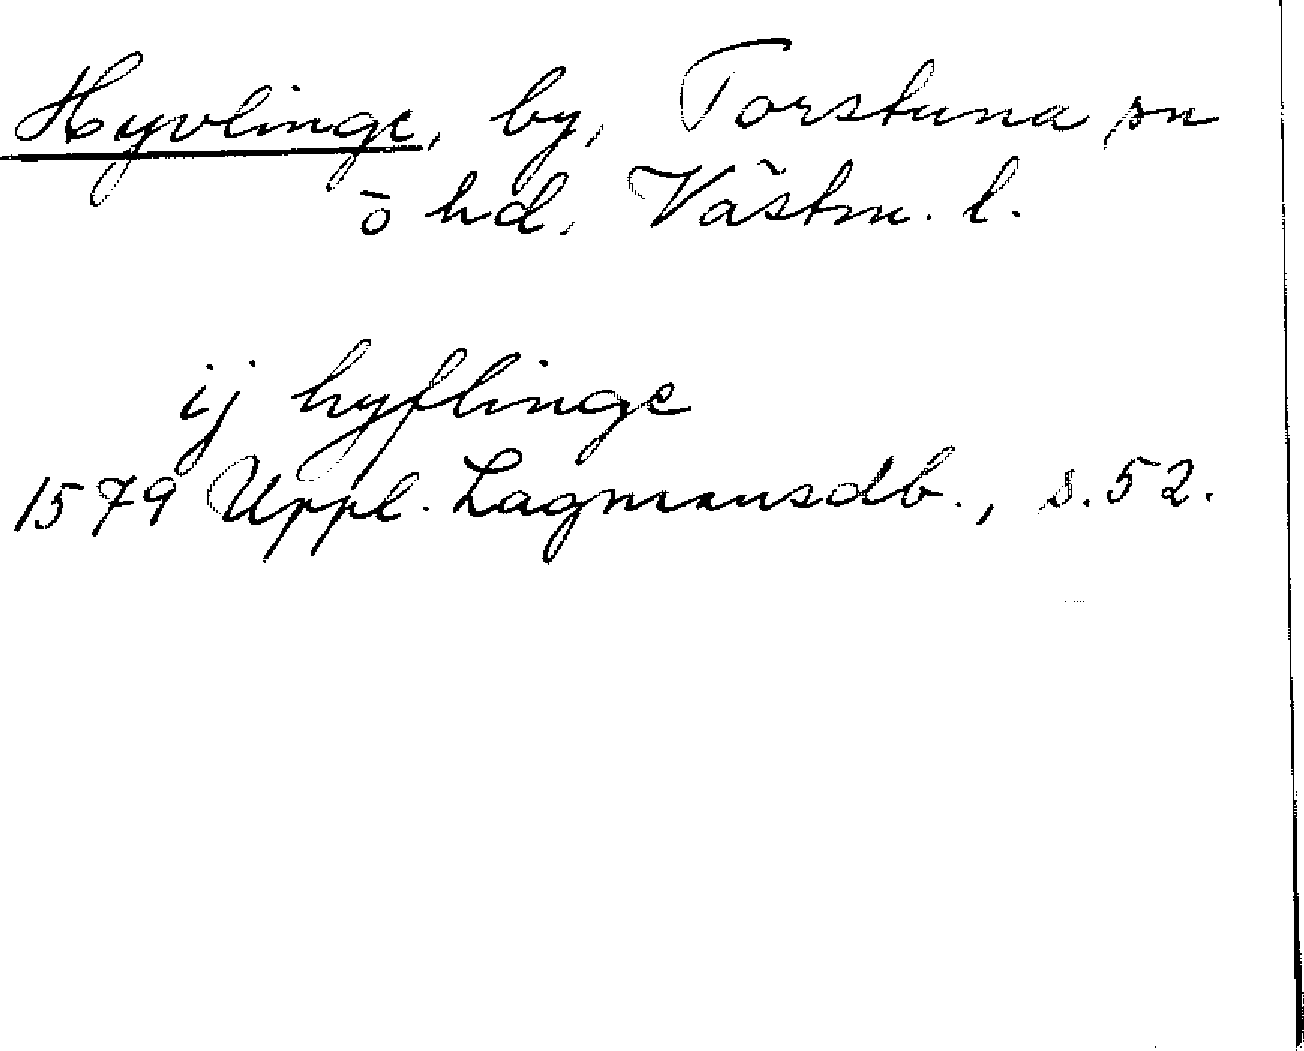 Hyvlinge, by, Torstuna sn
ö hd, Västm. l.
ij hyflinge
1579 Uppl. Lagmansdb., s. 52.